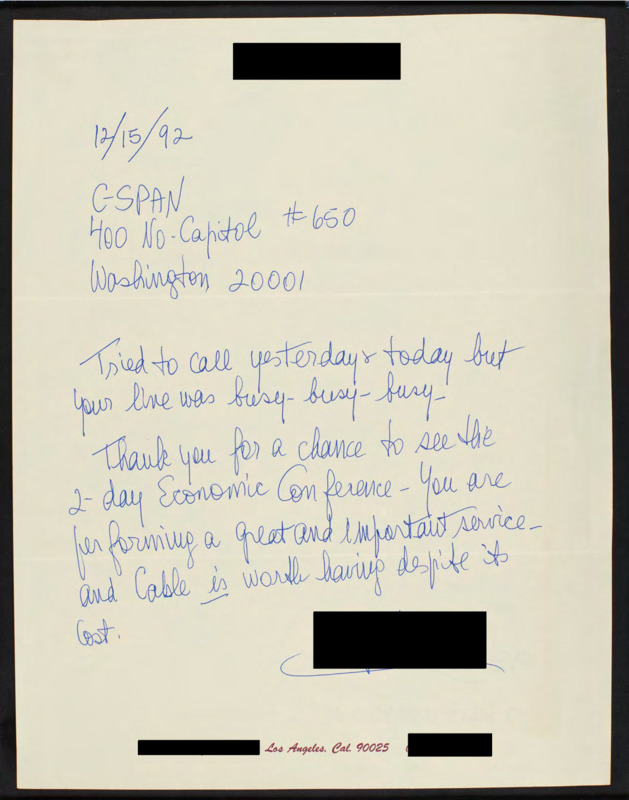 12/15/92
C-SPAN
400 No. Capitol #650
Washington 20001
Tried to call yesterday & today but
your line was busy- busy- busy-
Thank you for a chance to see the
2-day Economic Conference- You are
performing a great and important service-
and Cable is worth having despite its
cost.
Los Angeles, Cal. 90025